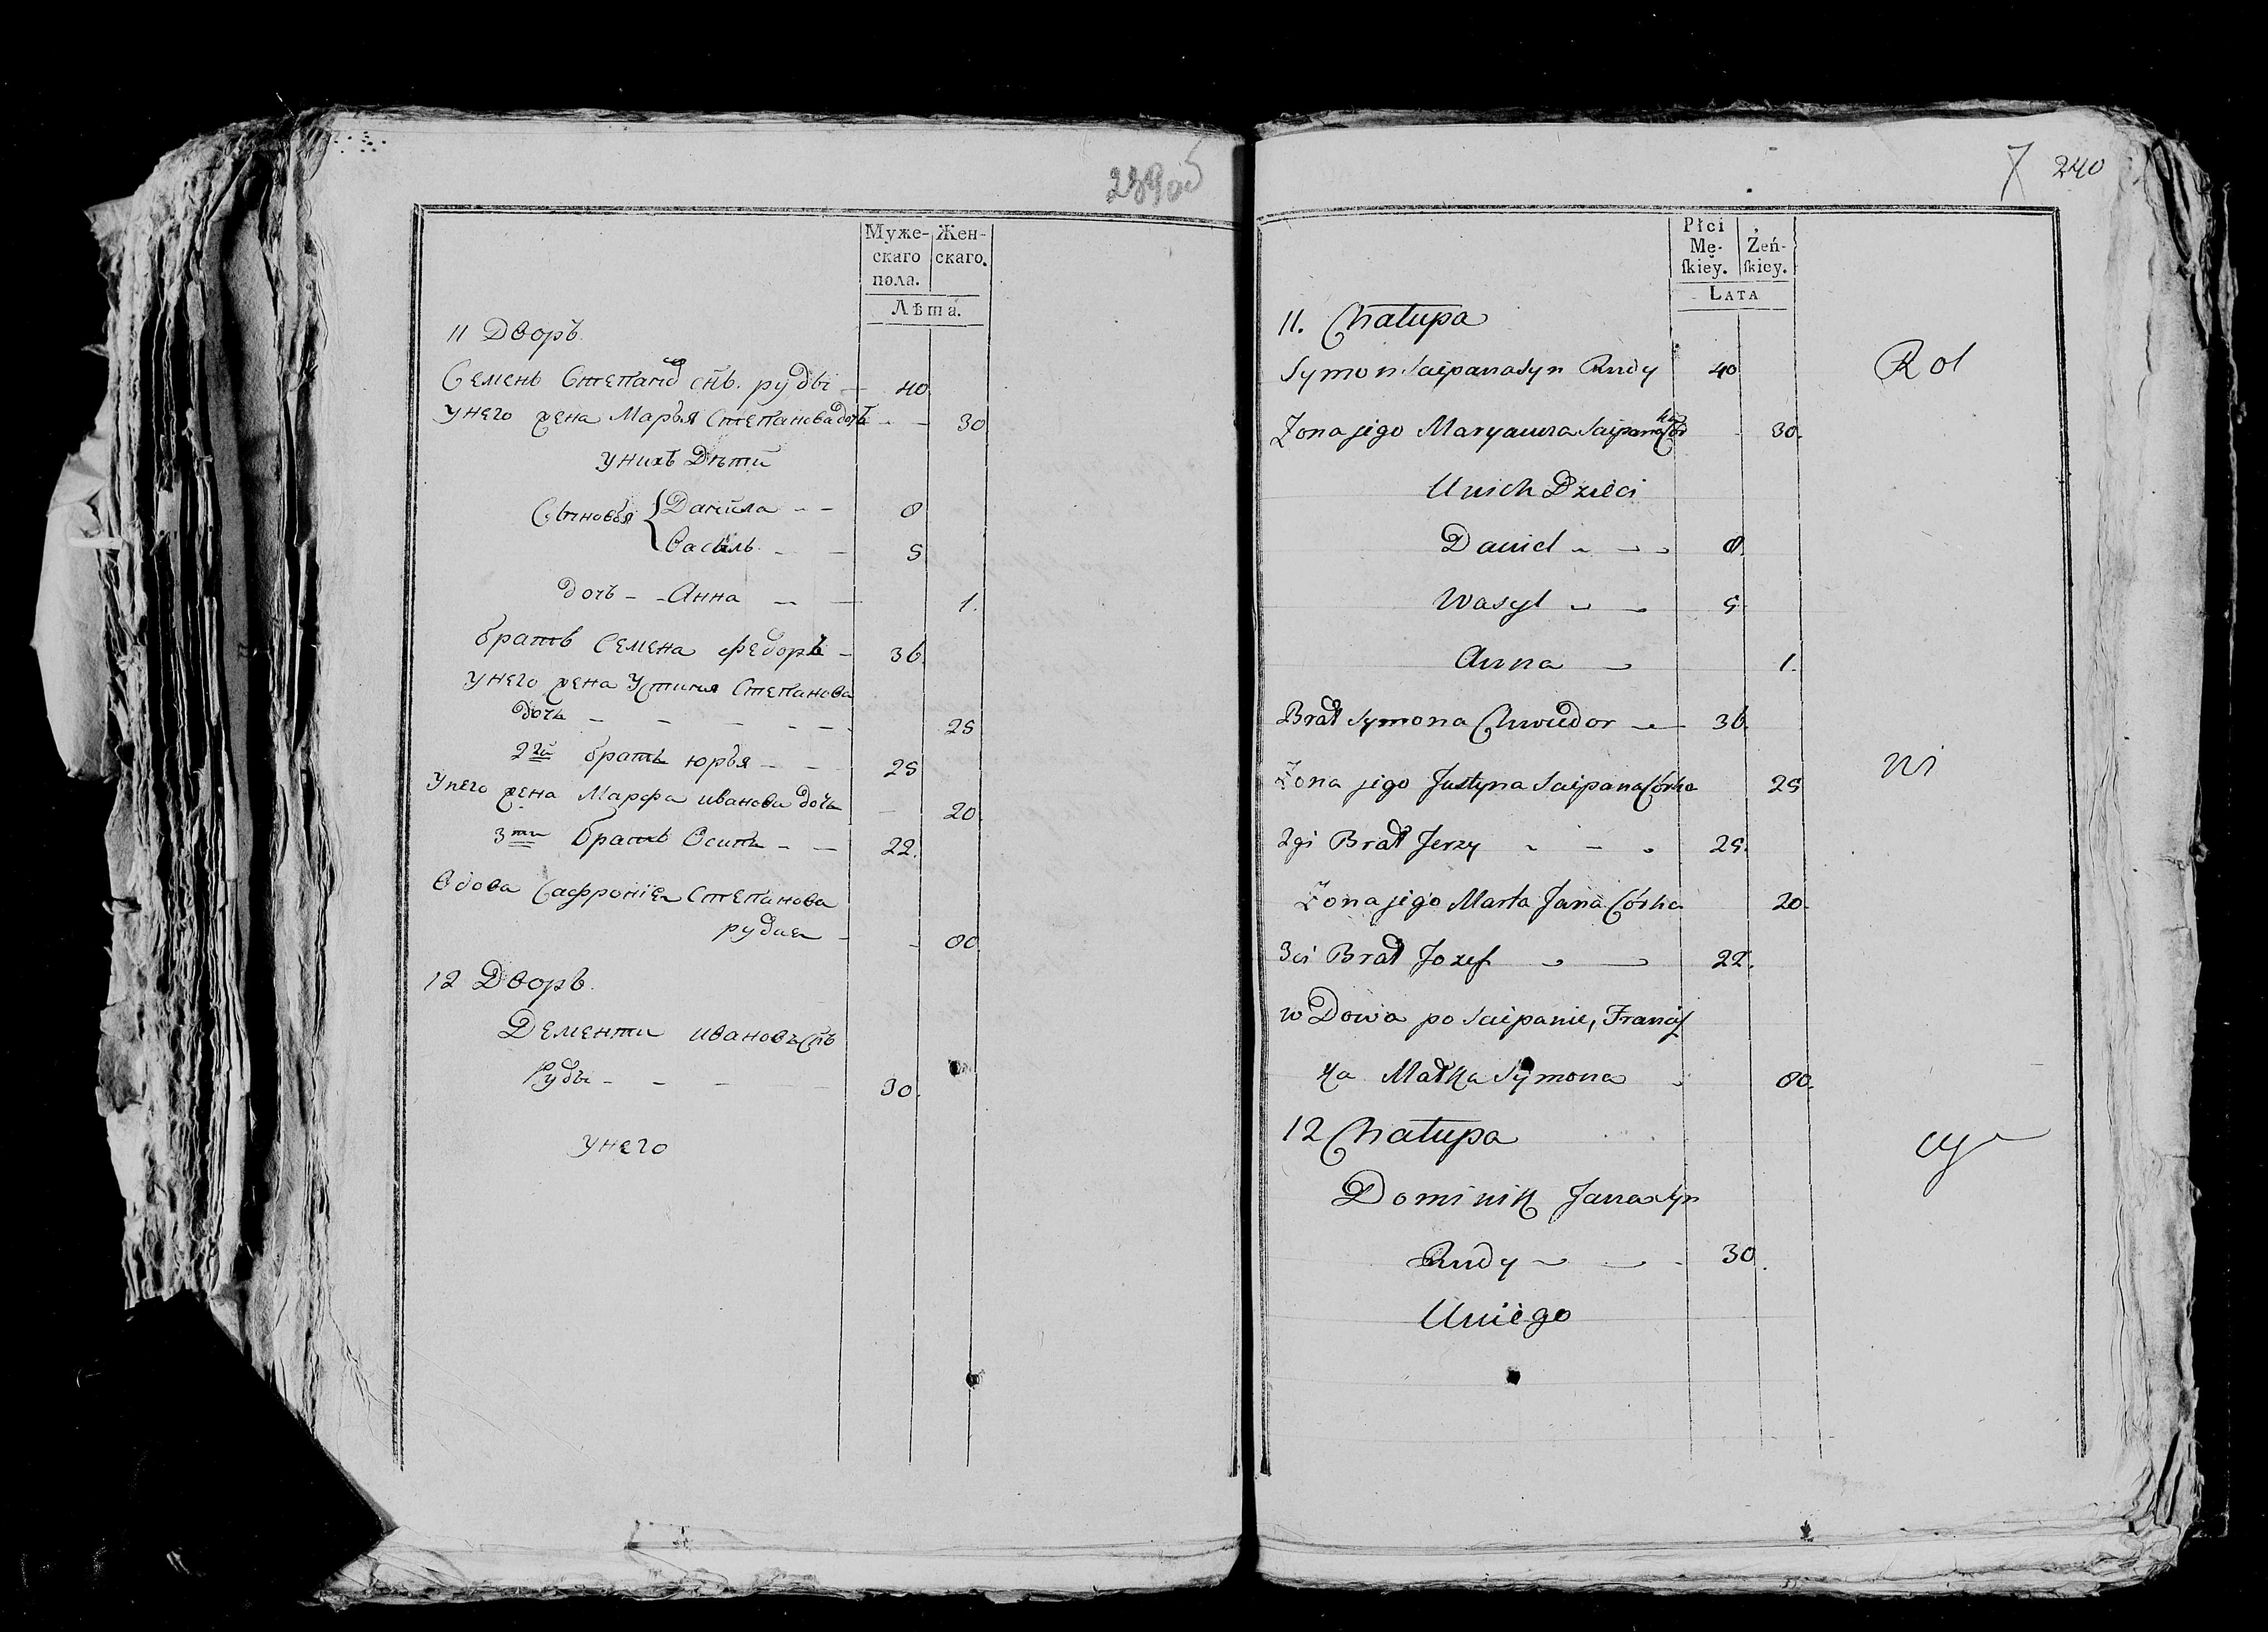 239об
Муже- Жен-
скаго скаго.
пола.
Лѣта.
11 Дворъ.
Семенъ Степанов снъ. руды — 40
унего жена Марья Степанова дочь - - 30
унихъ Дѣти
Сыновья { Данила - - 8
Василь - - 5
дочь - - Анна - - 1.
братъ Семена Федоръ - 36.
унего жена Устинья Степанова
дочь - - - - - 25
2й братъ юрья - - 25
Унего жена Марфа иванова дочь - 20.
3ти братъ Осипъ - - 22.
Вдова Сафронiя Степанова
рудая - - 80
12 Дворъ.
Дементи ивановъ Снъ
Руды - - - 30.
унего
7 240
Płci
Mę- Żeń-
ſkiey. ſkiey.
LATA
11. Chałupa
Symon Sciepana Syn Rudy 40
Rol
Żona jego Maryanna Sciepana Córka 30.
Unich Dzieci
Daniel - - 8
Wasyl - - 5
Anna - 1.
Brat Symona Chwiedor - 36.
Żona jego Justyna Sciepana Córka 25
ni
2gi Brat Jerzy - - - 25.
Żona jego Marta Jana Córka 20.
3ci Brat Jozef - - 22.
wDowa po Sciepanie, Francis
ka Matka Symona - 80.
12 Chałupa
cy
Dominik Jana Syn
Rudy - - - 30.
Uniego